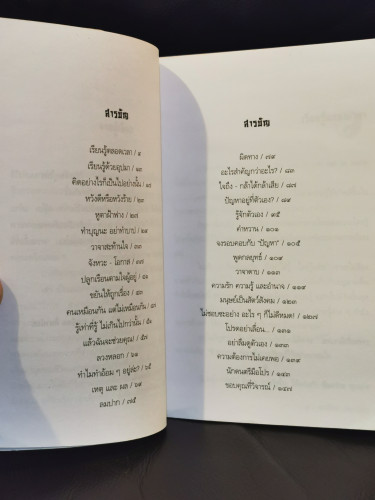 สารบัญ
เรียนรู้ตลอดเวลา / ๕
เรียนรู้ด้วยอุปมา / ๑๓
คิดอย่างไรก็เป็นไปอย่างนั้น / ๑๘
หวังดีหรือหวังร้าย / ๒๓
หูตาฝ้าฟาง / ๒๗
ทำบุญนะ อย่าทำบาป / ๓๑
วาจาสะท้านใจ / ๓๓
จังหวะ - โอกาส / ๓๗
ปลูกเรือนตามใจผู้อยู่ / ๔๑
ขยันให้ถูกเรื่อง / ๔๓
คนเหมือนกัน แต่ไม่เหมือนกัน /
รู้เท่าที่รู้ ไม่เกินไปกว่านั้น / ๕๑
แล้วฉันจะช่วยคุณ! / ๕๗
ลวงหลอก / ๖๑
ทำไมทำอ้อม ๆ อยู่ล่ะ? / ๖๕
เหตุ และ ผล / ๖๙
ลมปาก / ๗๕
สารบัญ
ผิดทาง / ๗๙
อะไรสำคัญกว่าอะไร? / ๘๓
ใจถึง - กล้าได้กล้าเสีย / ๘๗
ปัญหาอยู่ที่ตัวเอง? / ๙๑
รู้จักตัวเอง / ๙๕
คำหวาน / ๑๐๑
จงรอบคอบกับ "ปัญหา" / ๑๐๕
พูดกลยุทธ์ / ๑๐๙
วาจาดาบ / ๑๑๓
ความรัก ความรู้ และอำนาจ / ๑๑๙
มนุษย์เป็นสัตว์สังคม / ๑๒๓
ไม่ชอบซะอย่าง อะไร ๆ ก็ไม่ดีหมด! / ๑๒๗
โปรดอย่าเลื่อน... / ๑๓๑
อย่าลืมดูตัวเอง / ๑๓๕
ความต้องการไม่เคยพอ / ๑๓๙
นักดนตรีมือโปร / ๑๔๓
ขอบคุณที่วิจารณ์ / ๑๔๗